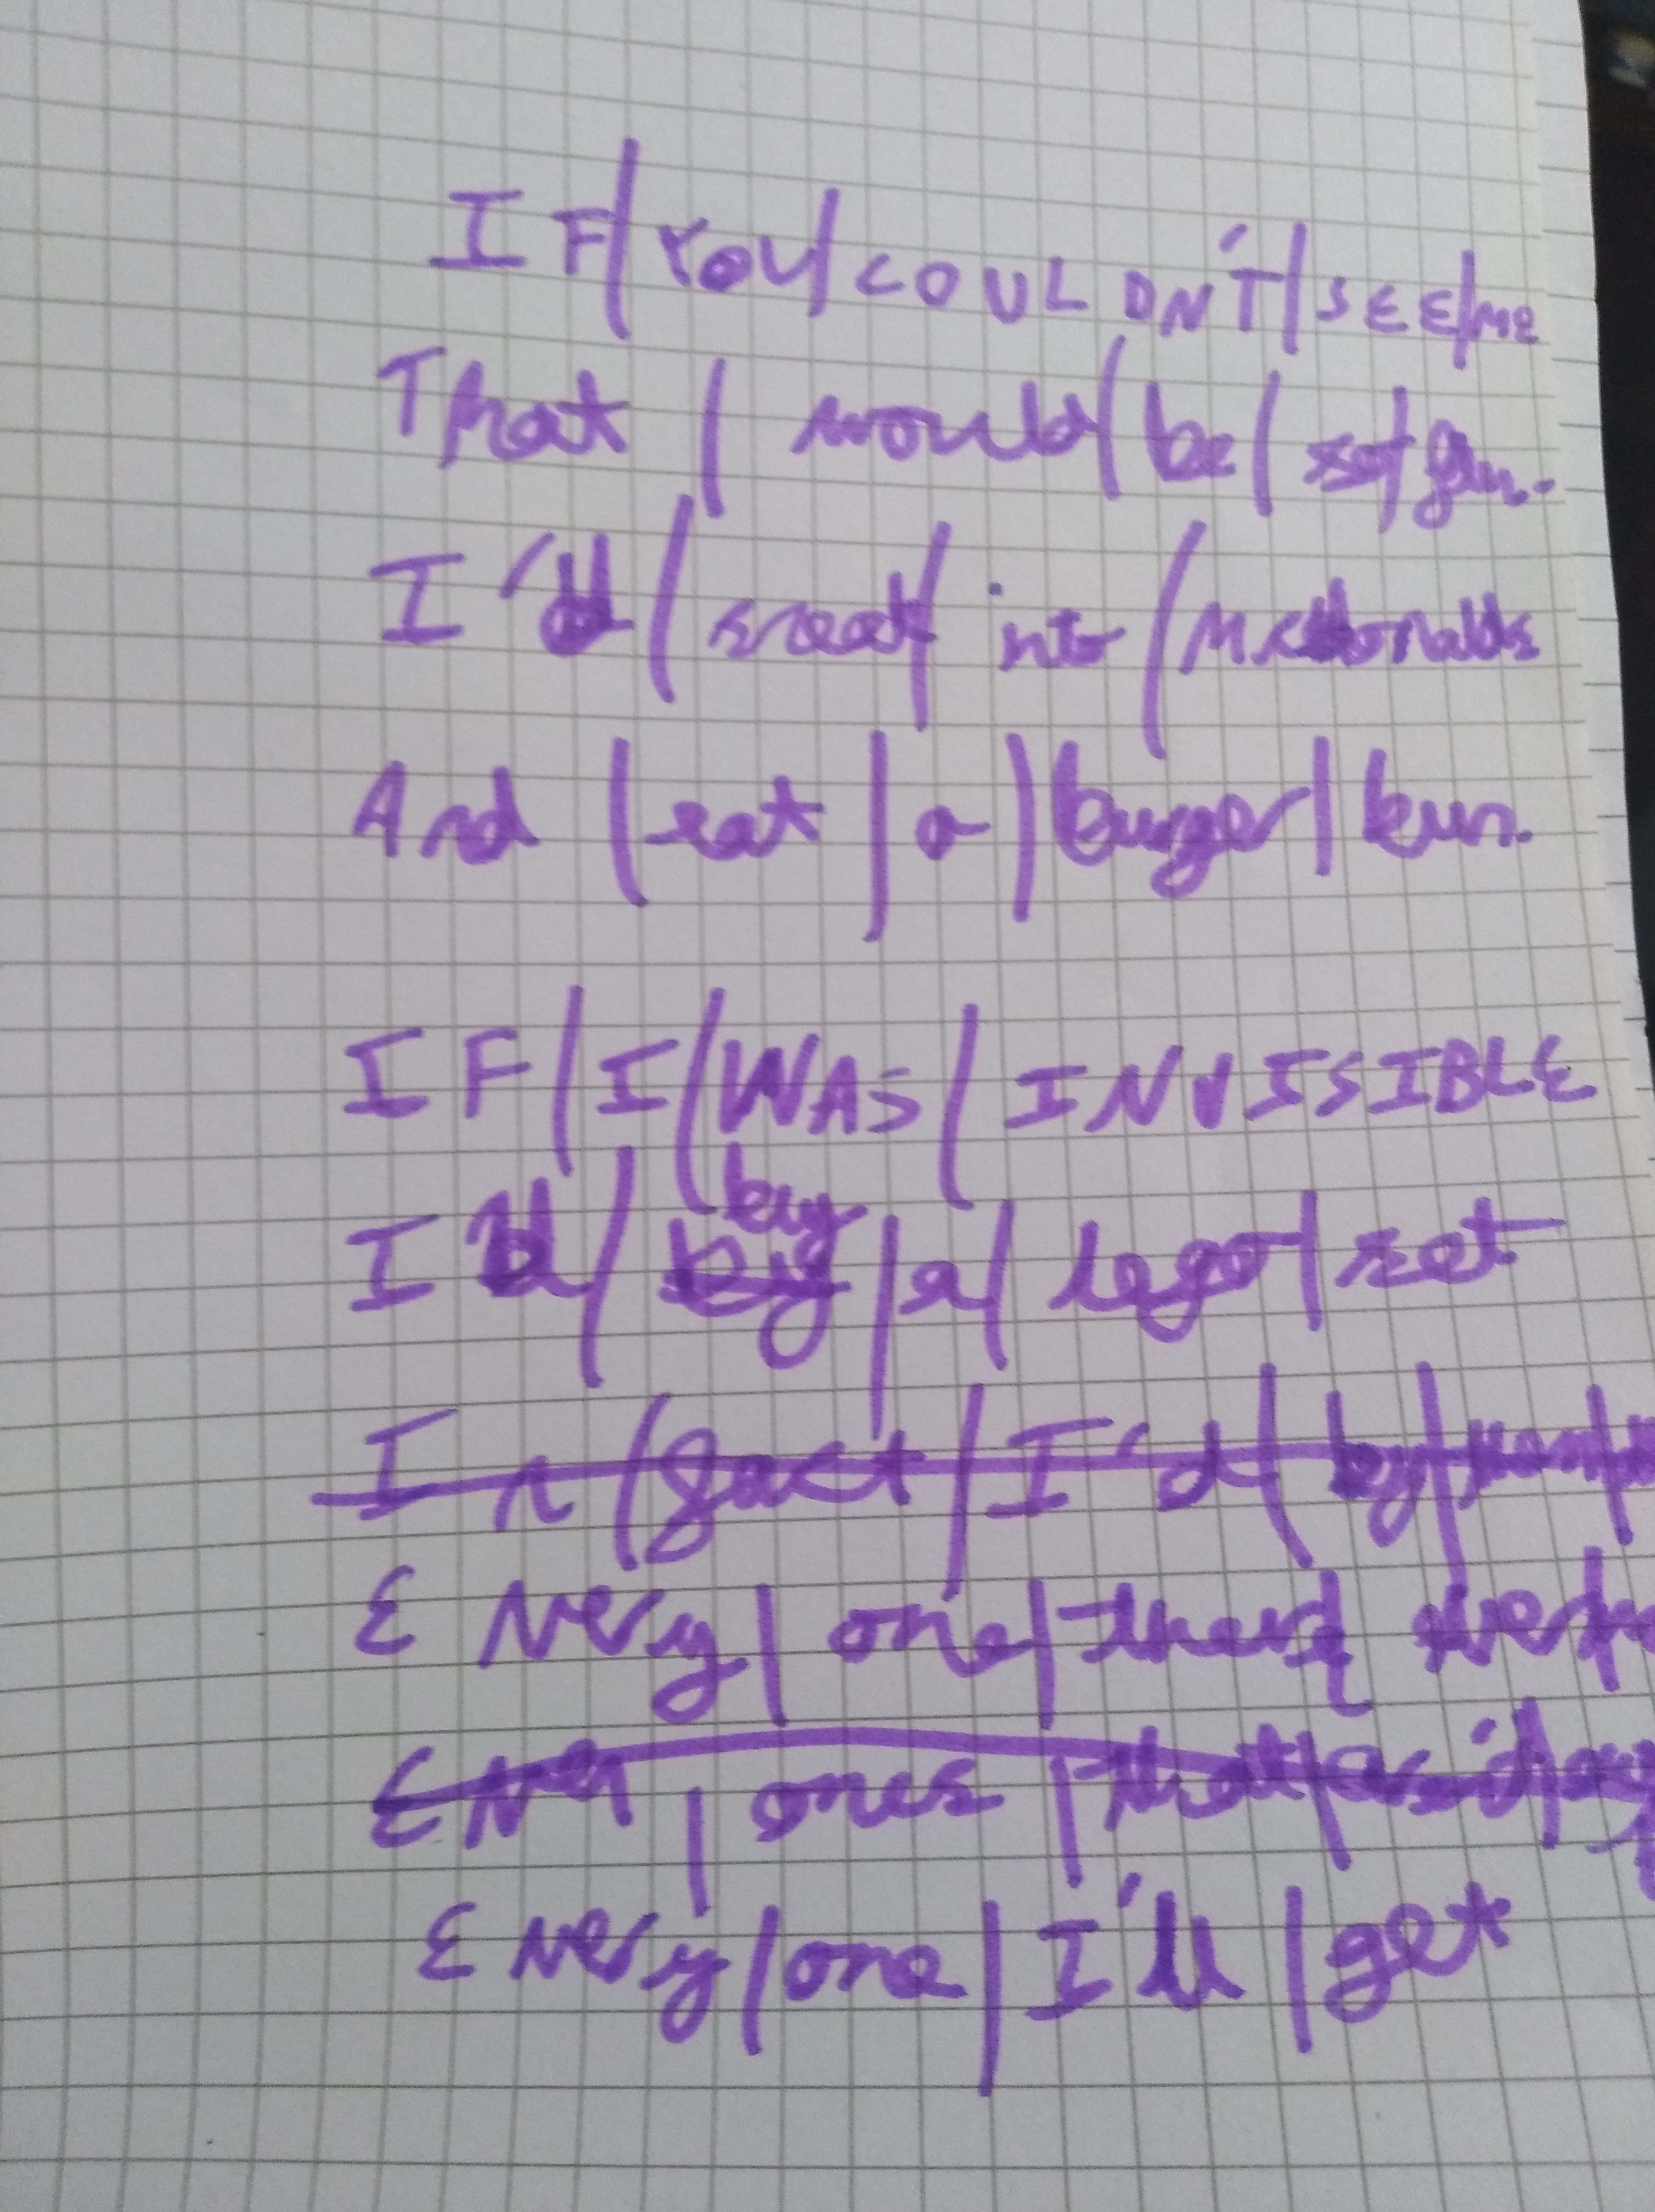 IF/YOU/COULDN'T/SEE/me
That / would/ be/ so/ fun.
I'd/ sneak/ into /McDonalds
And /eat / a / burger/ bun.
IF/I/WAS/INVISIBLE
I'd/ buy /a/ lego/ set
In /fact/I'd/ by/
Every/ one/
ones / that/
Every/one/I'll/get